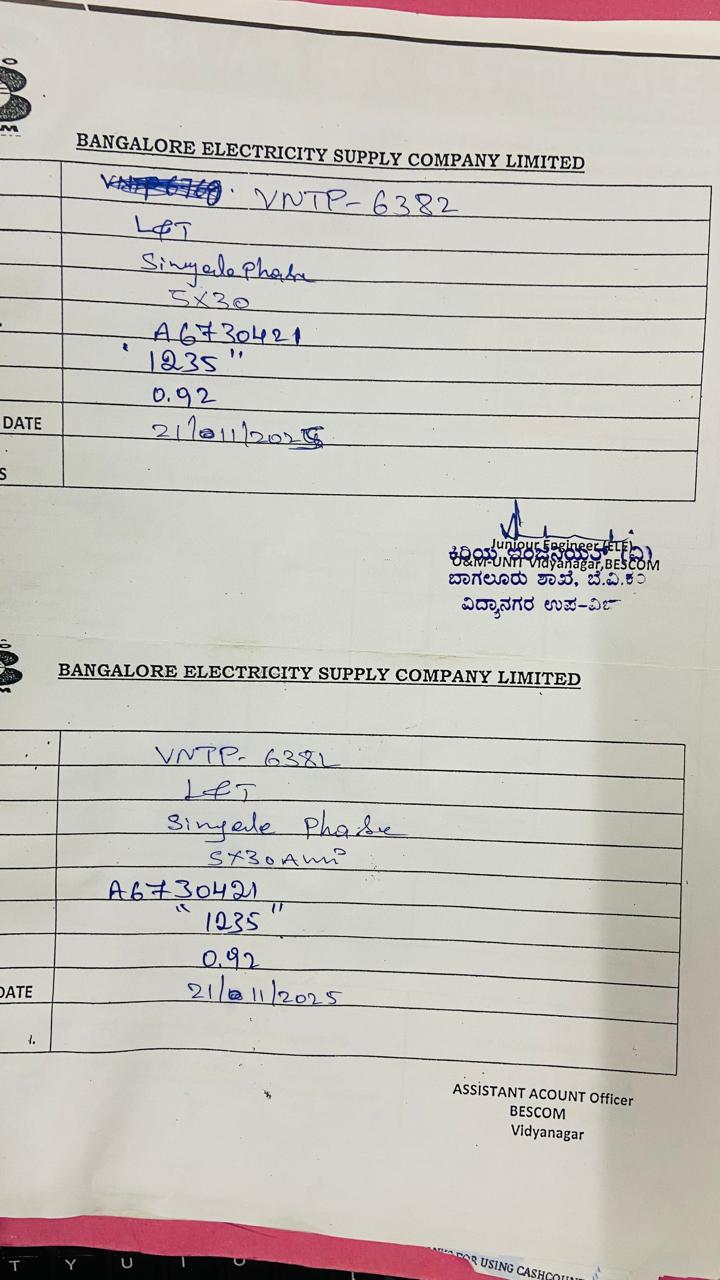 M
BANGALORE ELECTRICITY SUPPLY COMPANY LIMITED
VNTP-6382
L&T
Singale Phase
5X30
A6730421
"1235"
0.92
DATE 21/011/2025
S
Juniour Engineer (ELE)
ಕಿರಿಯ ಇಂಜಿನಿಯರ್ (ವಿ)
O&M-UNIT Vidyanagar,BESCOM
ಬಾಗಲೂರು ಶಾಖೆ, ಬೆ.ವಿ.ಕಂ
ವಿದ್ಯಾನಗರ ಉಪ-ವಿ
M
BANGALORE ELECTRICITY SUPPLY COMPANY LIMITED
VNTP-6382
L&T
Singale Phase
5X30Amp
A6730421
"1235"
0.92
DATE 21/11/2025
1.
ASSISTANT ACOUNT Officer
BESCOM
Vidyanagar
FOR USING CASHCOUN
T Y U I O